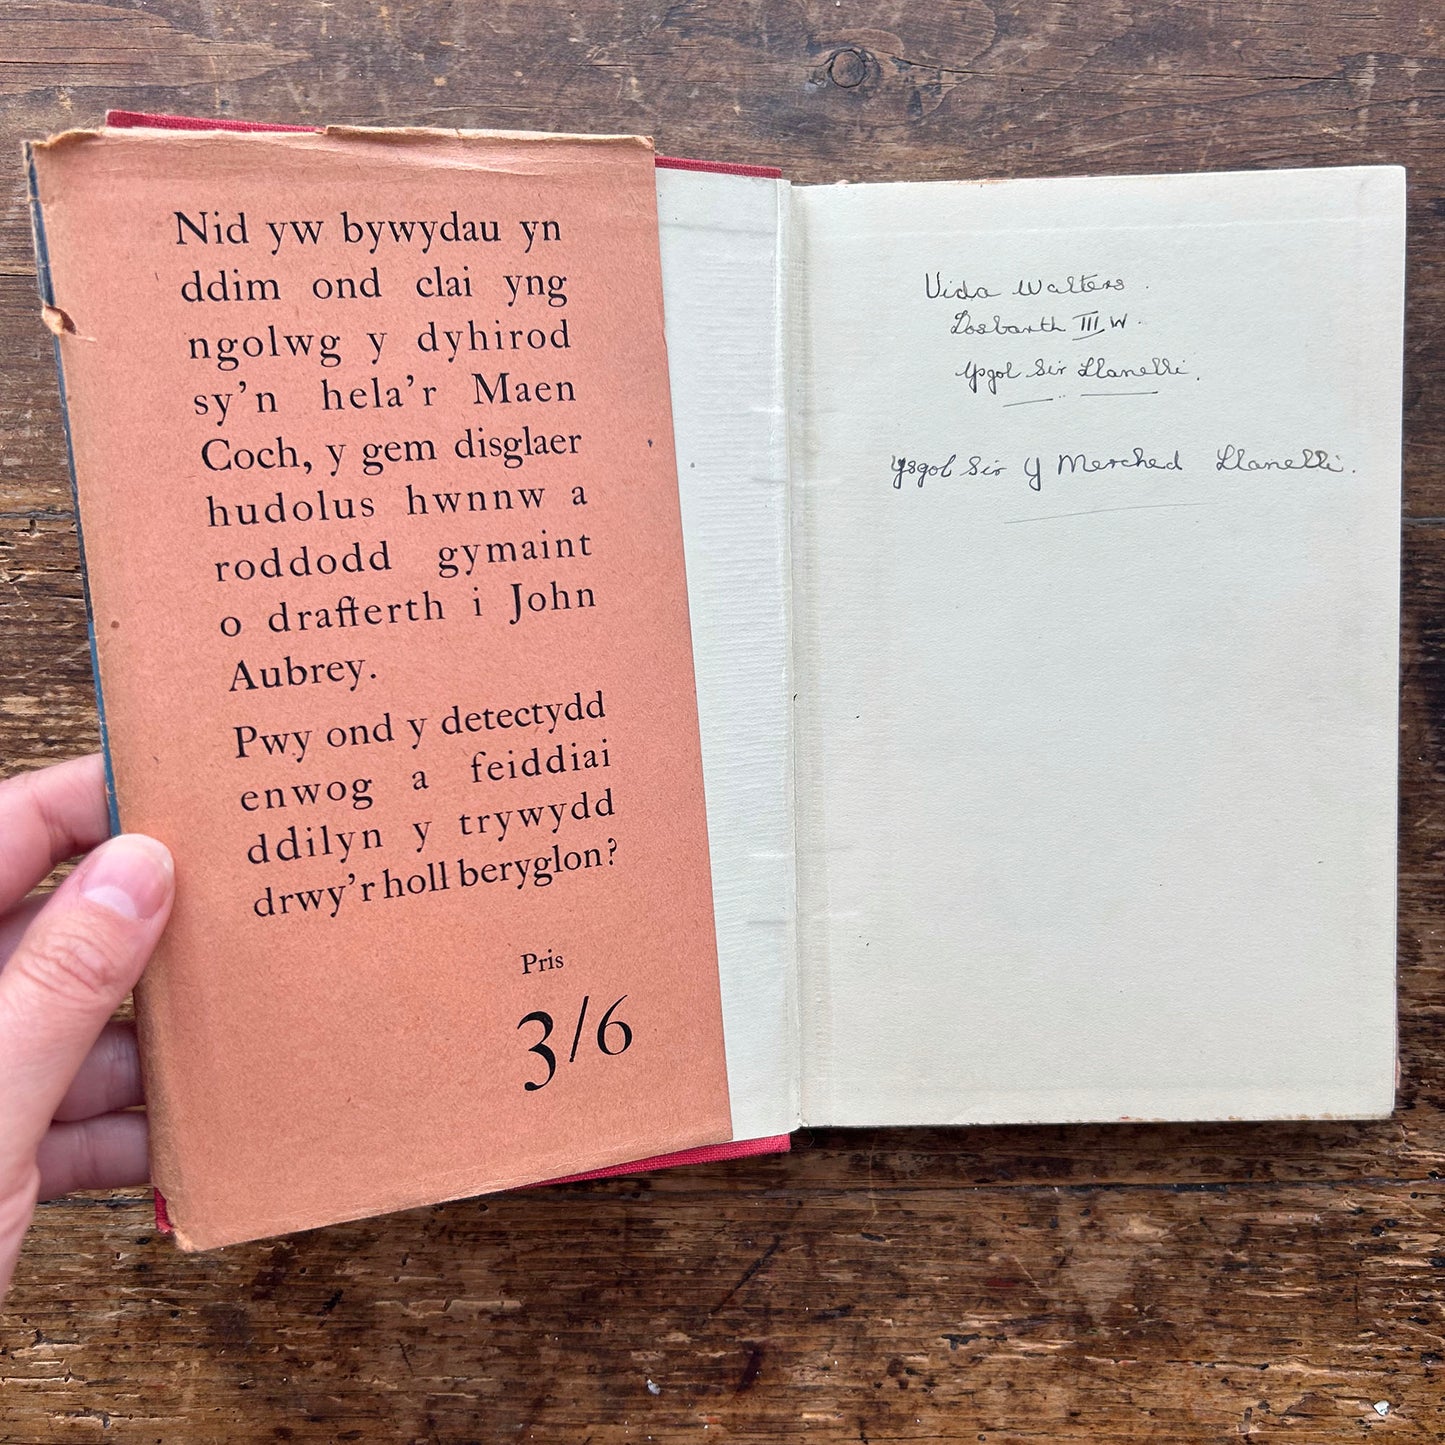 Nid yw bywydau yn
ddim ond clai yng
ngolwg y dyhirod
sy’n hela’r Maen
Coch, y gem disglaer
hudolus hwnnw a
roddodd gymaint
o drafferth i John
Aubrey.
Pwy ond y detectydd
enwog a feiddiai
ddilyn y trywydd
drwy’r holl beryglon?
Pris
3/6
Vida Walters.
Dosbarth III W.
Ysgol Sir Llanelli.
Ysgol Sir Y Merched Llanelli.